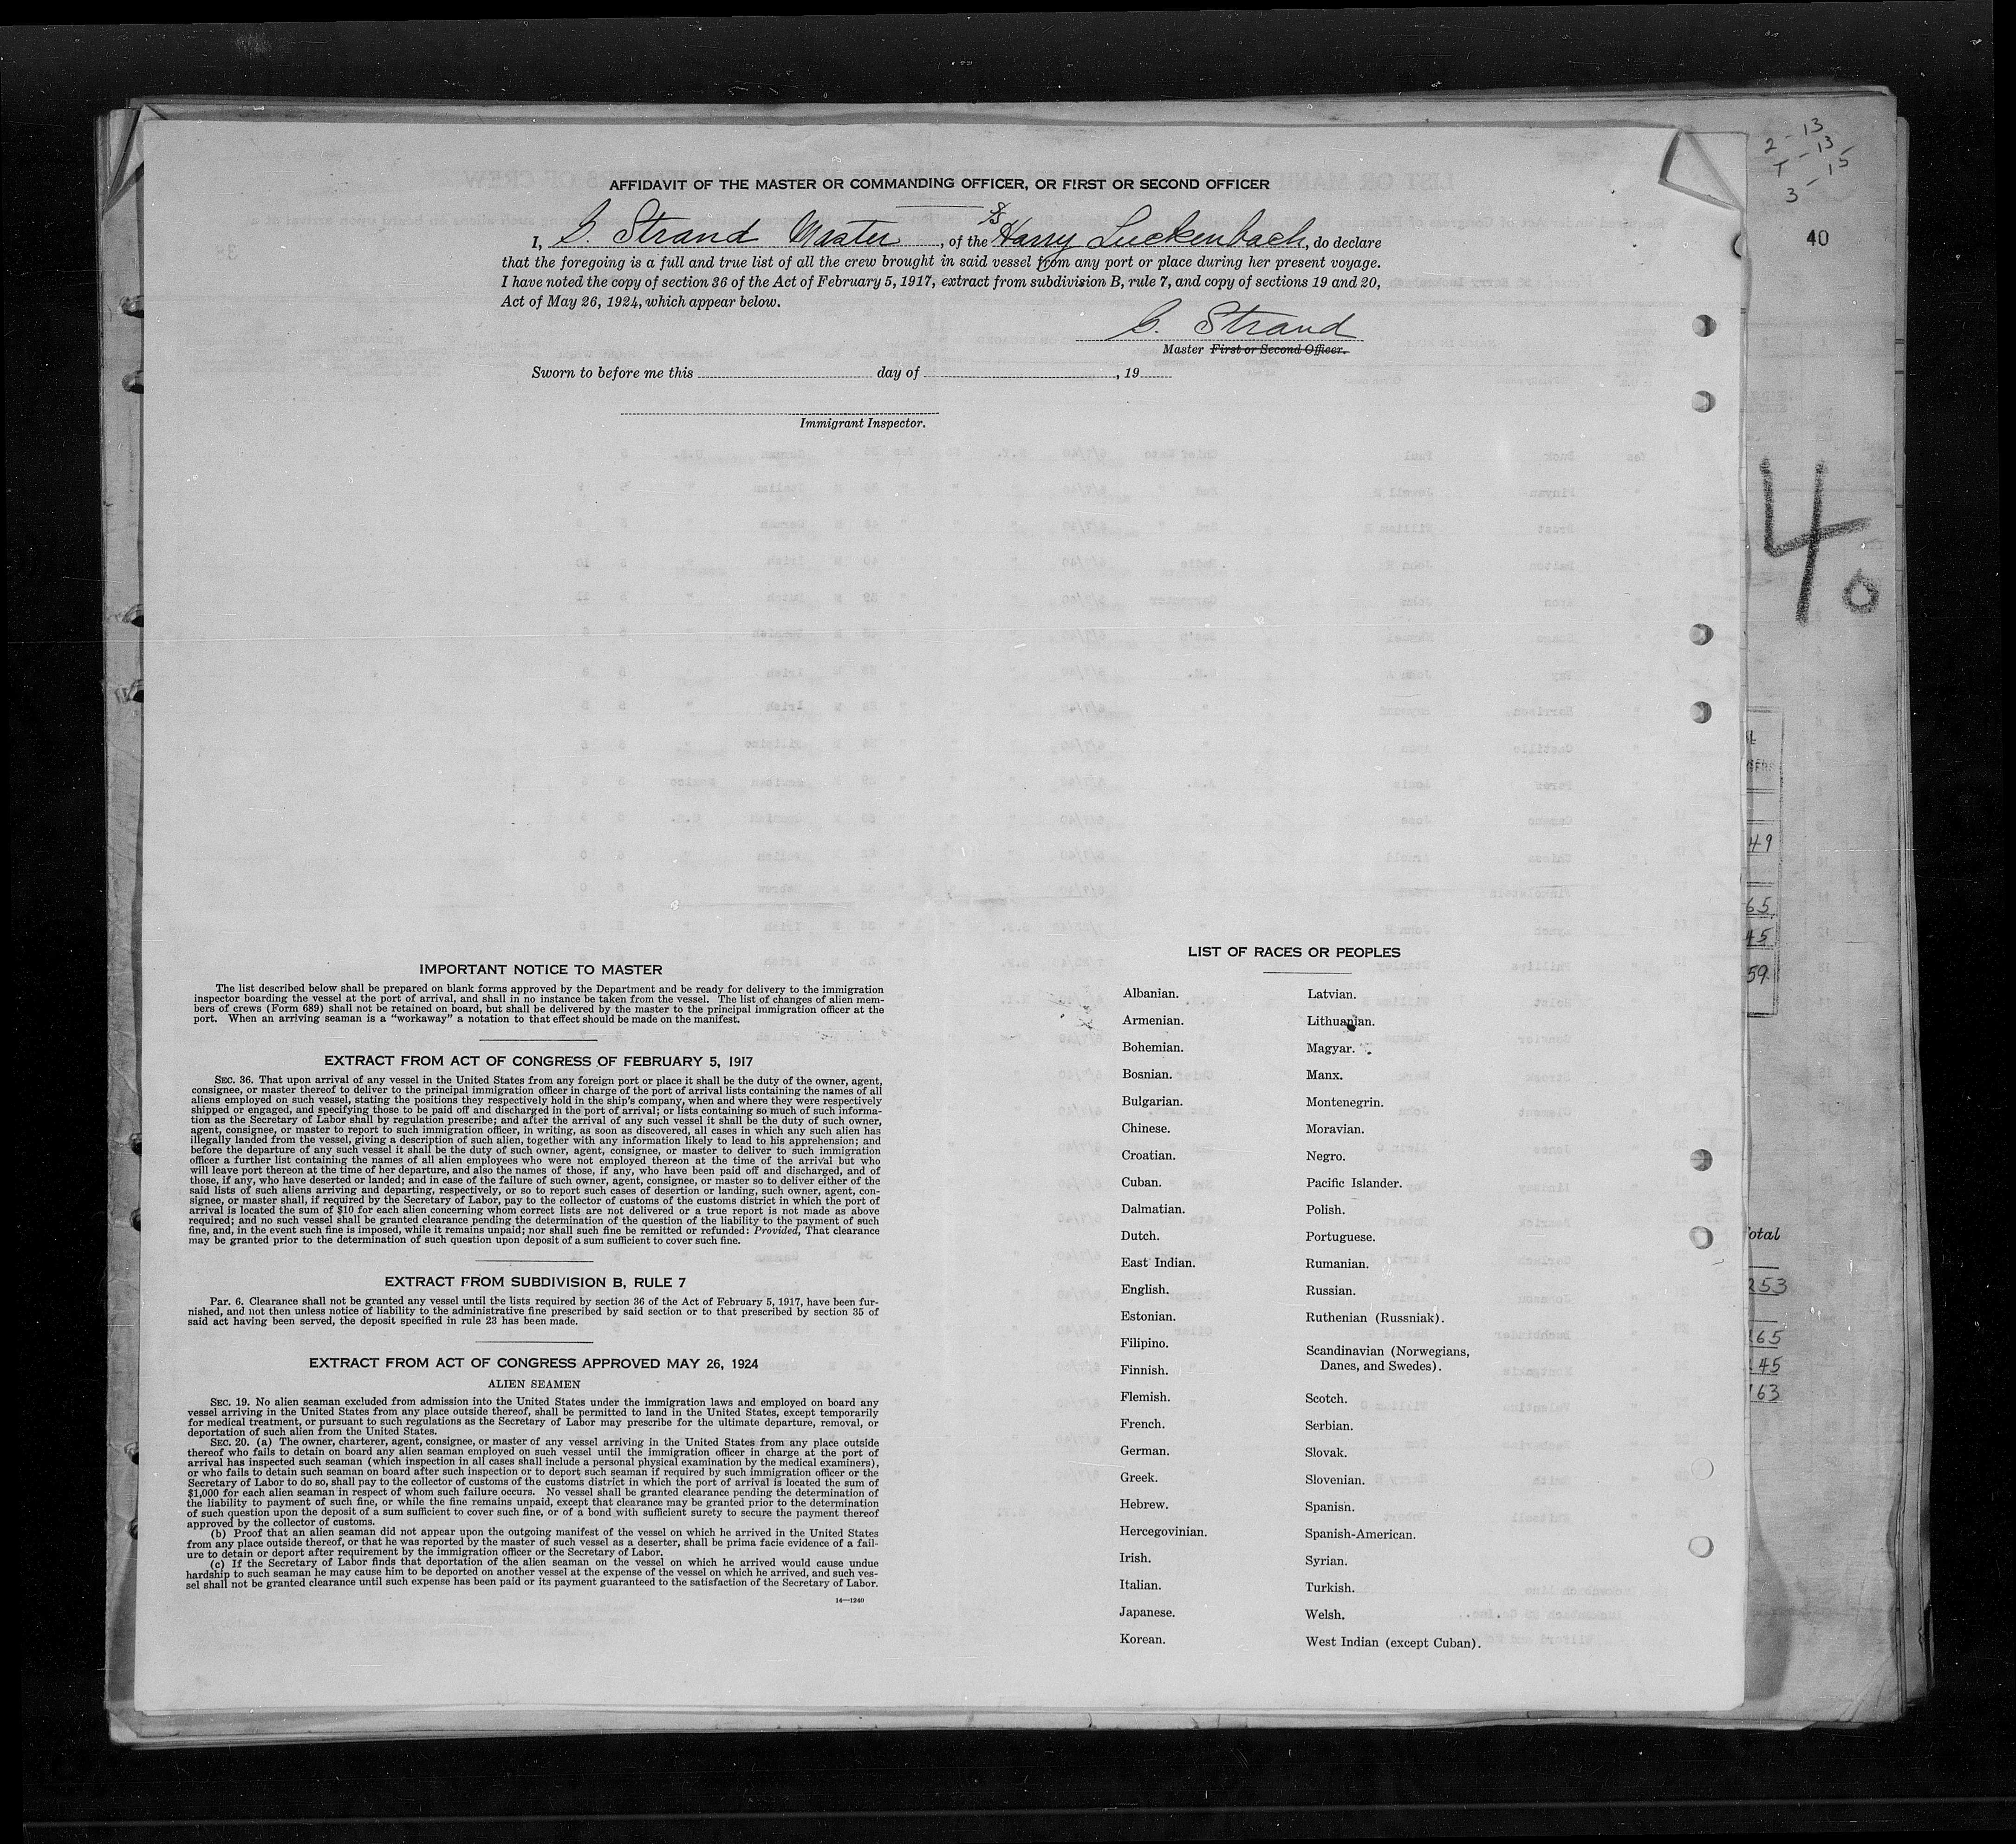 AFFIDAVIT OF THE MASTER OR COMMANDING OFFICER, OR FIRST OR SECOND OFFICER
I, Strand Master, of the Harry Luckenbach, do declare
that the foregoing is a full and true list of all the crew brought in said vessel from any port or place during her present voyage.
I have noted the copy of section 36 of the Act of February 5, 1917, extract from subdivision B, rule 7, and copy of sections 19 and 20,
Act of May 26, 1924, which appear below.
Strand
Master First or Second Officer.
Sworn to before me this day of , 19
Immigrant Inspector.
2 - 13
T - 13
3 - 15
40
40
IMPORTANT NOTICE TO MASTER
The list described below shall be prepared on blank forms approved by the Department and be ready for delivery to the immigration
inspector boarding the vessel at the port of arrival, and shall in no instance be taken from the vessel. The list of changes of alien mem-
bers of crews (Form 689) shall not be retained on board, but shall be delivered by the master to the principal immigration officer at the
port. When an arriving seaman is a "workaway" a notation to that effect should be made on the manifest.
EXTRACT FROM ACT OF CONGRESS OF FEBRUARY 5, 1917
SEC. 36. That upon arrival of any vessel in the United States from any foreign port or place it shall be the duty of the owner, agent,
consignee, or master thereof to deliver to the principal immigration officer in charge of the port of arrival lists containing the names of all
aliens employed on such vessel, stating the positions they respectively hold in the ship's company, when and where they were respectively
shipped or engaged, and specifying those to be paid off and discharged in the port of arrival; or lists containing so much of such informa-
tion as the Secretary of Labor shall by regulation prescribe; and after the arrival of any such vessel it shall be the duty of such owner,
agent, consignee, or master to report to such immigration officer, in writing, as soon as discovered, all cases in which any such alien has
illegally landed from the vessel, giving a description of such alien, together with any information likely to lead to his apprehension; and
before the departure of any such vessel it shall be the duty of such owner, agent, consignee, or master to deliver to such immigration
officer a further list containing the names of all alien employees who were not employed thereon at the time of the arrival but who
will leave port thereon at the time of her departure, and also the names of those, if any, who have been paid off and discharged, and of
those, if any, who have deserted or landed; and in case of the failure of such owner, agent, consignee, or master so to deliver either of the
said lists of such aliens arriving and departing, respectively, or so to report such cases of desertion or landing, such owner, agent, con-
signee, or master shall, if required by the Secretary of Labor, pay to the collector of customs of the customs district in which the port of
arrival is located the sum of $10 for each alien concerning whom correct lists are not delivered or a true report is not made as above
required; and no such vessel shall be granted clearance pending the determination of the question of the liability to the payment of such
fine, and, in the event such fine is imposed, while it remains unpaid; nor shall such fine be remitted or refunded: Provided, That clearance
may be granted prior to the determination of such question upon deposit of a sum sufficient to cover such fine.
EXTRACT FROM SUBDIVISION B, RULE 7
Par. 6. Clearance shall not be granted any vessel until the lists required by section 36 of the Act of February 5, 1917, have been fur-
nished, and not then unless notice of liability to the administrative fine prescribed by said section or to that prescribed by section 35 of
said act having been served, the deposit specified in rule 23 has been made.
EXTRACT FROM ACT OF CONGRESS APPROVED MAY 26, 1924
ALIEN SEAMEN
SEC. 19. No alien seaman excluded from admission into the United States under the immigration laws and employed on board any
vessel arriving in the United States from any place outside thereof, shall be permitted to land in the United States, except temporarily
for medical treatment, or pursuant to such regulations as the Secretary of Labor may prescribe for the ultimate departure, removal, or
deportation of such alien from the United States.
SEC. 20. (a) The owner, charterer, agent, consignee, or master of any vessel arriving in the United States from any place outside
thereof who fails to detain on board any alien seaman employed on such vessel until the immigration officer in charge at the port of
arrival has inspected such seaman (which inspection in all cases shall include a personal physical examination by the medical examiners),
or who fails to detain such seaman on board after such inspection or to deport such seaman if required by such immigration officer or the
Secretary of Labor to do so, shall pay to the collector of customs of the customs district in which the port of arrival is located the sum of
$1,000 for each alien seaman in respect of whom such failure occurs. No vessel shall be granted clearance pending the determination of
the liability to payment of such fine, or while the fine remains unpaid, except that clearance may be granted prior to the determination
of such question upon the deposit of a sum sufficient to cover such fine, or of a bond with sufficient surety to secure the payment thereof
approved by the collector of customs.
(b) Proof that an alien seaman did not appear upon the outgoing manifest of the vessel on which he arrived in the United States
from any place outside thereof, or that he was reported by the master of such vessel as a deserter, shall be prima facie evidence of a fail-
ure to detain or deport after requirement by the immigration officer or the Secretary of Labor.
(c) If the Secretary of Labor finds that deportation of the alien seaman on the vessel on which he arrived would cause undue
hardship to such seaman he may cause him to be deported on another vessel at the expense of the vessel on which he arrived, and such ves-
sel shall not be granted clearance until such expense has been paid or its payment guaranteed to the satisfaction of the Secretary of Labor.
14—1240
LIST OF RACES OR PEOPLES
Albanian.
Armenian.
Bohemian.
Bosnian.
Bulgarian.
Chinese.
Croatian.
Cuban.
Dalmatian.
Dutch.
East Indian.
English.
Estonian.
Filipino.
Finnish.
Flemish.
French.
German.
Greek.
Hebrew.
Hercegovinian.
Irish.
Italian.
Japanese.
Korean.
Latvian.
Lithuanian.
Magyar.
Manx.
Montenegrin.
Moravian.
Negro.
Pacific Islander.
Polish.
Portuguese.
Rumanian.
Russian.
Ruthenian (Russniak).
Scandinavian (Norwegians,
Danes, and Swedes).
Scotch.
Serbian.
Slovak.
Slovenian.
Spanish.
Spanish-American.
Syrian.
Turkish.
Welsh.
West Indian (except Cuban).
49
65
45
59
otal
253
165
145
163